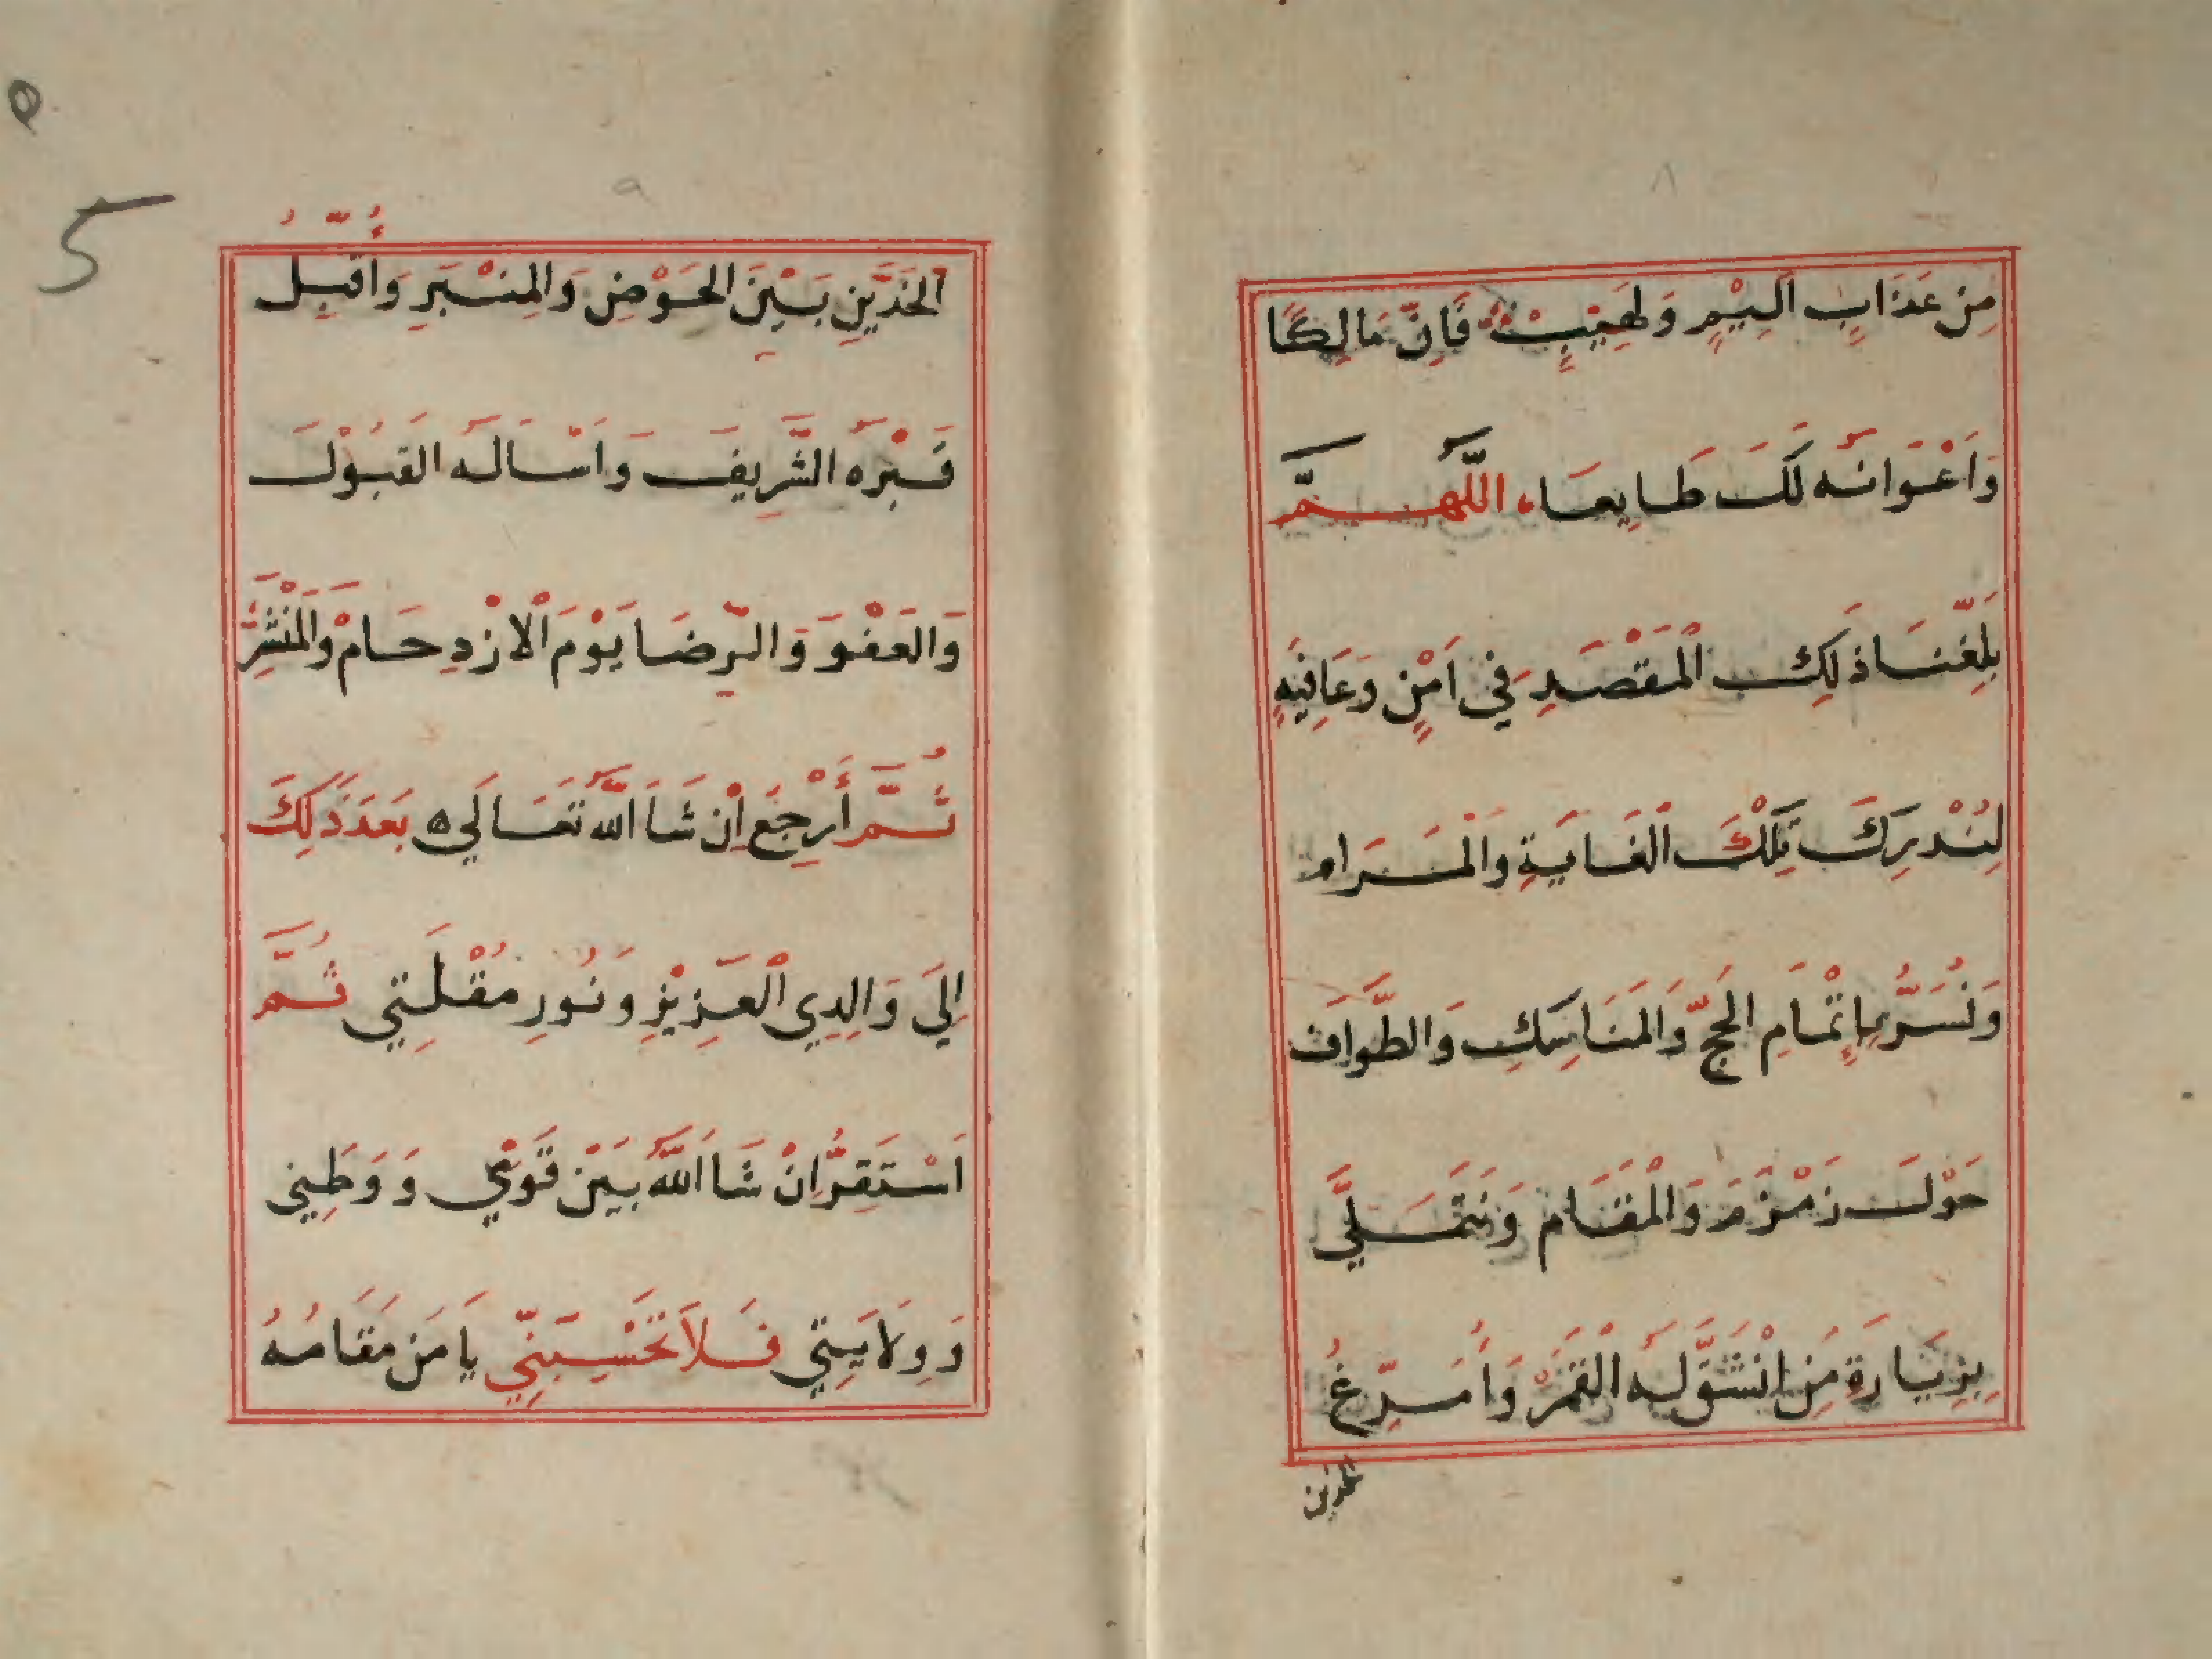 ٨
مِن عَذَابٍ اَلِيْمٍ وَلَهِيْبٍ فَاِنَّ مَالِكًا
وَاَعْوَانَه لَكَ طَايِعَا، اللّٰهُمَّ
بَلِّغْنَا ذَلِكَ الْمَقْصَدِ فِي اَمْنٍ وَعَافِيَةٍ
لِنُدْرِكَ تِلْكَ الْغَايَةِ وَالْمَرَام
وَنُسَرُّ بِإِتْمَامِ الحَجِّ وَالمَنَاسِكِ وَالطَّوَاف
حَوْلَ زَمْزَمَ وَالْمَقَام وَنَتَمَلَّى
بِزِيَارَةِ مَنِ انْشَقَّ لَهُ الْقَمَرْ وَاُمَرِّغُ
الخدين
٥
5
٩
الخَدَّيْنِ بَيْنَ الحَوْضِ وَالمِنْبَرِ وَأُقَبِّلُ
قَبْرَهُ الشَّرِيفَ وَاَسْاَلَهُ القَبُوْلَ
وَالعَفْوَ وَالرِّضَا يَوْمَ الْازْدِحَامْ وَالْمَنْشَرِ
ثُمَّ أَرْجِعَ اِنْ شَا اللّٰهُ تَعَالَي ه بَعَدَ ذَلِكَ
اِلَي وَالِدِي الْعَزِيْزِ وَنُورِ مُقْلَتِي ثُمَّ
اَسْتَقِرُّ اِنْ شَا اللّٰهُ بَيْنَ قَوْمِي وَوَطَنِي
وَوِلَايَتِي فَلَا تَحْسَبَنِّي يَا مَن مَقَامُهُ